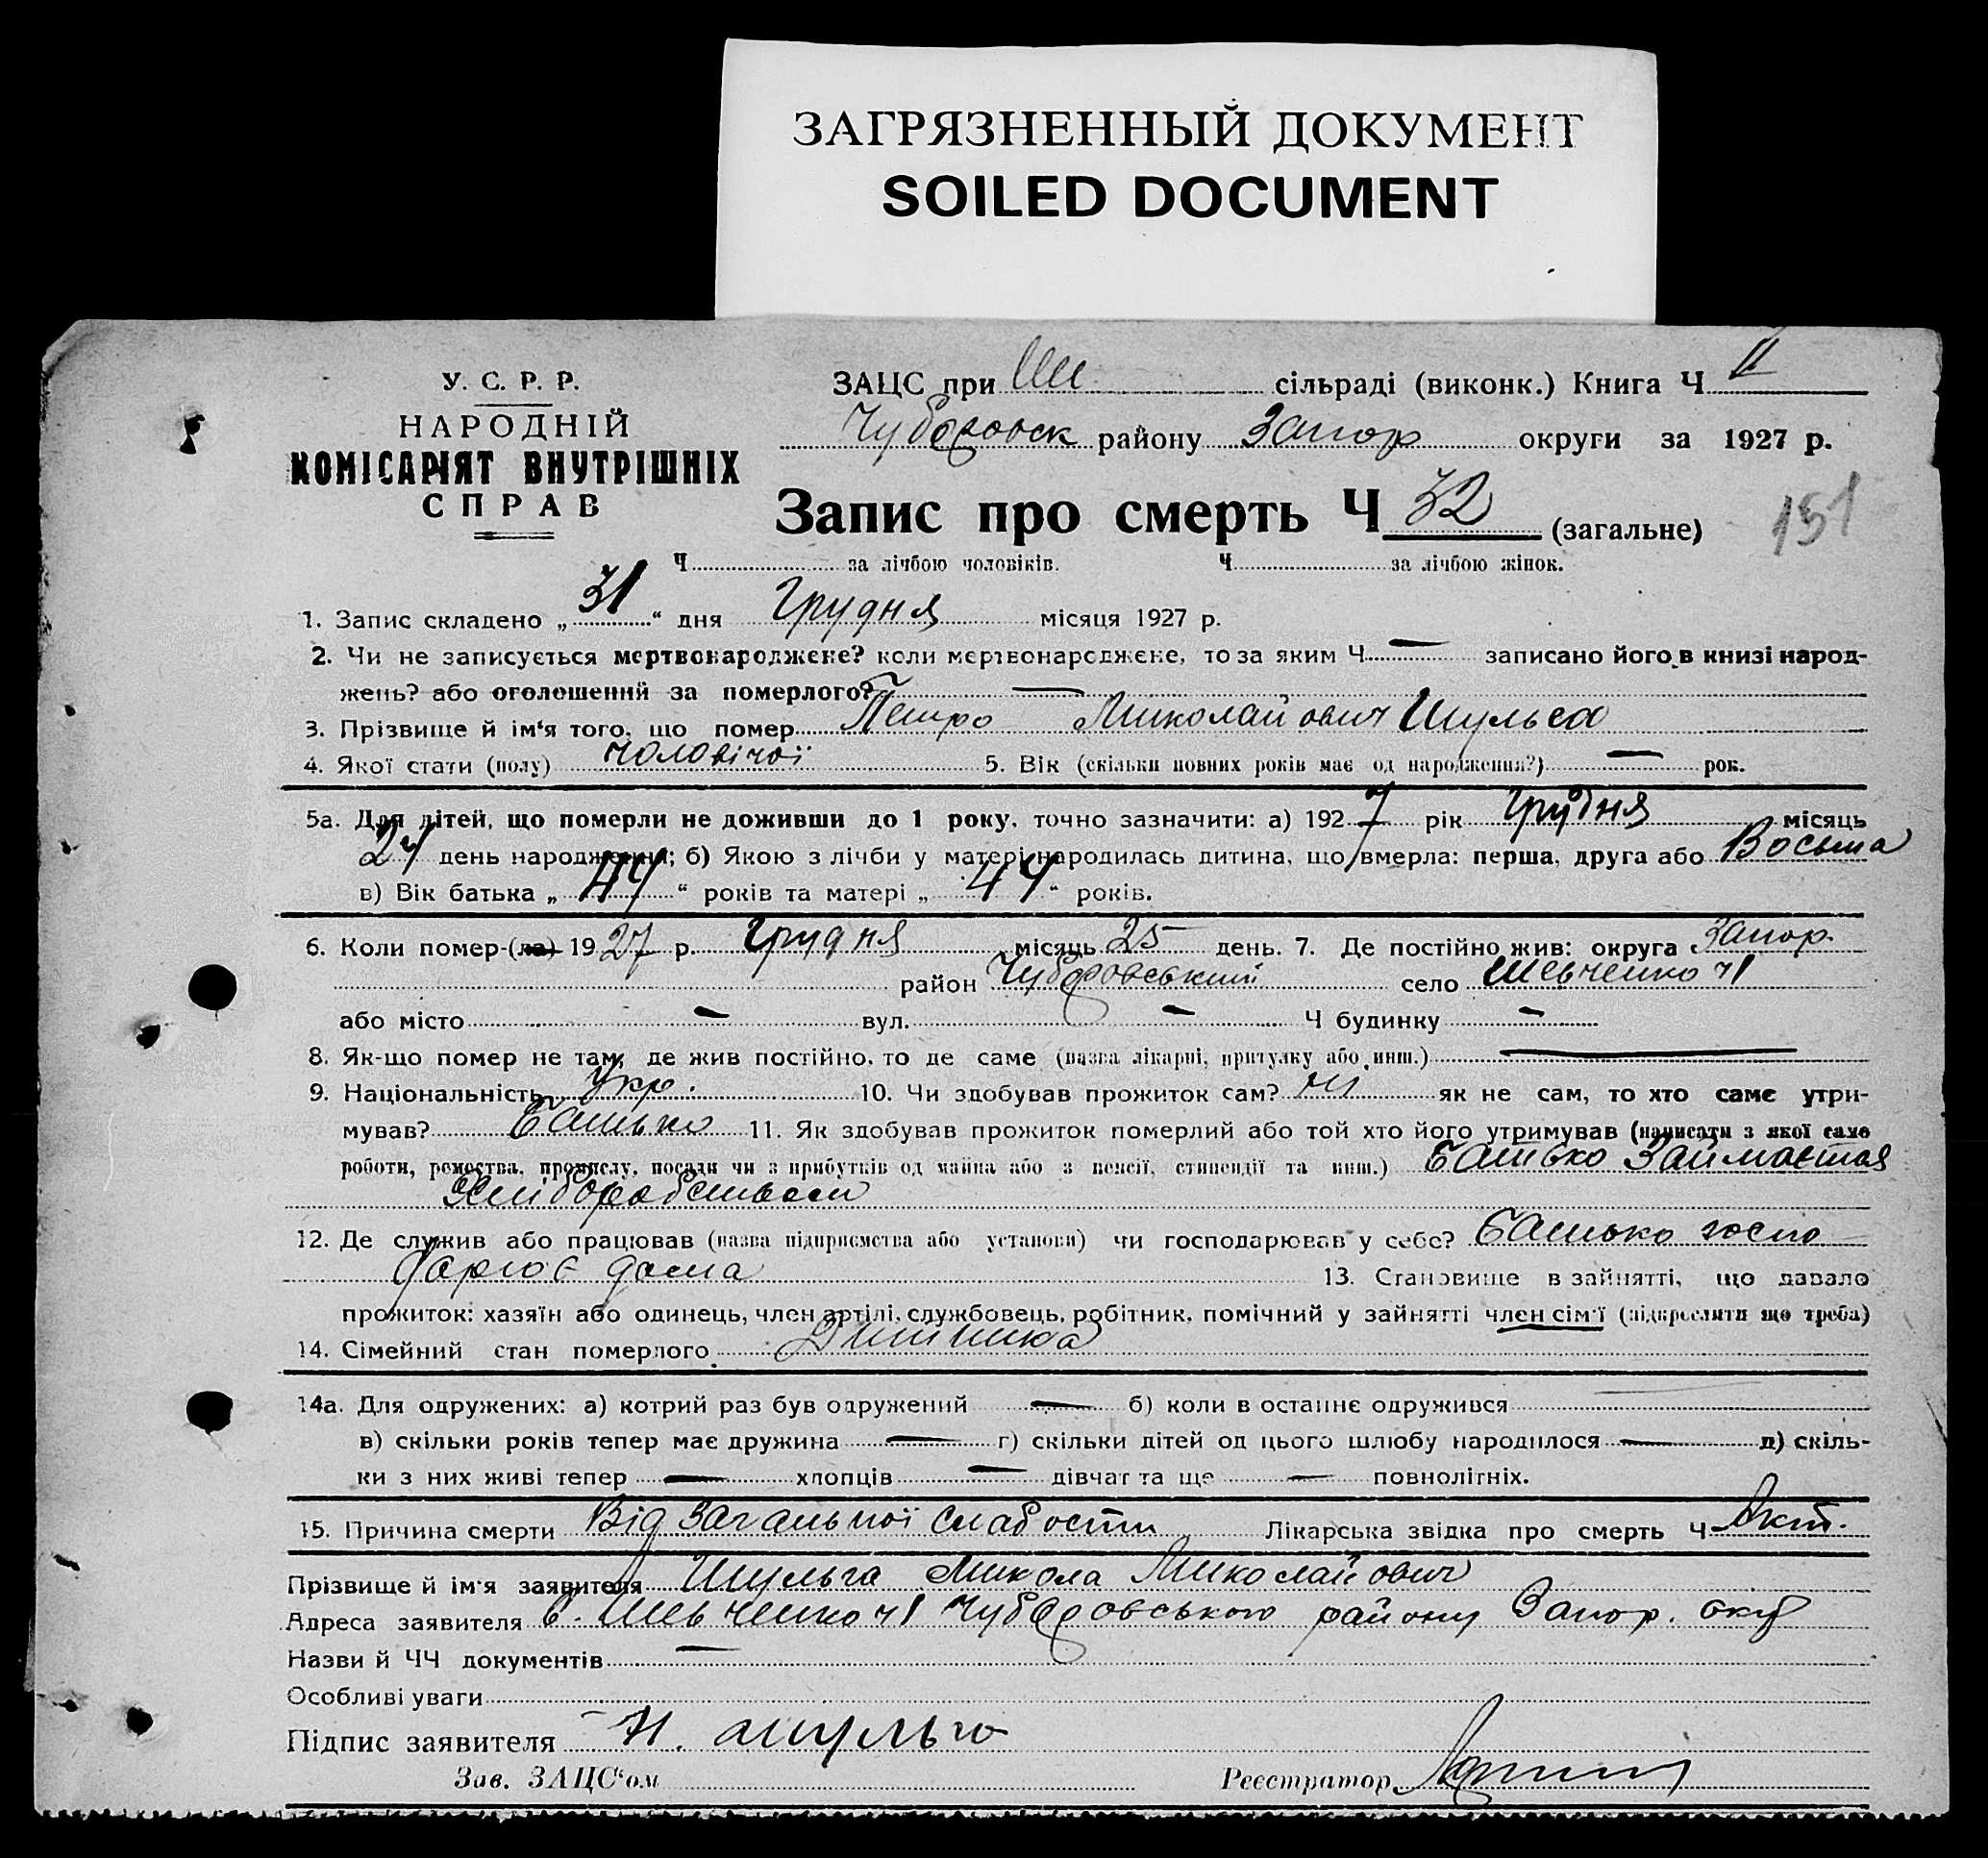 ЗАГРЯЗНЕННЫЙ ДОКУМЕНТ
SOILED DOCUMENT
У. С. Р. Р.
НАРОДНІЙ
КОМІСАРІЯТ ВНУТРІШНІХ
СПРАВ
ЗАЦС при сільраді (виконк.) Книга Ч II
Чубаровск району Запор округи за 1927 р.
Запис про смерть Ч 32 (загальне)
151
Ч за лічбою чоловіків. Ч за лічбою жінок.
1. Запис складено „ 31 “ дня Грудня місяця 1927 р.
2. Чи не записується мертвонароджене? коли мертвонароджене, то за яким Ч — записано його в книзі народ-
жень? або оголошений за померлого? —
3. Прізвище й ім‘я того, що помер Петро Миколайович Шульга
4. Якої стати (полу) чоловічої 5. Вік (скільки повних років має од народження?) — рок.
5а. Для дітей, що померли не доживши до 1 року, точно зазначити: а) 1927 рік Грудня місяць
24 день народження; б) Якою з лічби у матері народилась дитина, що вмерла: перша, друга або Восьма
в) Вік батька „ 44 “ років та матері „ 44 “ років.
6. Коли помер-(ла) 1927 р. Грудня місяць 25 день. 7. Де постійно жив: округа Запор.
район Чубаровський село Шевченко ч1
або місто — вул. — Ч будинку —
8. Як-що помер не там, де жив постійно, то де саме (назва лікарні, притулку або инш.) —
9. Національність Укр. 10. Чи здобував прожиток сам? ні як не сам, то хто саме утри-
мував? Батько 11. Як здобував прожиток померлий або той хто його утримував (написати з якої саме
роботи, ремества, промислу, посади чи з прибутків од майна або з пенсії, стипендії та инш.) Батько Займается
Хліборобством
12. Де служив або працював (назва підприємства або установи) чи господарював у себе? Батько госпо
дарює дома 13. Становище в зайнятті, що давало
прожиток: хазяїн або одинець, член артілі, службовець, робітник, помічний у зайнятті член сім‘ї (підкреслити що треба)
14. Сімейний стан померлого Дитинка
14а. Для одружених: а) котрий раз був одружений — б) коли в останнє одружився
в) скільки років тепер має дружина — г) скільки дітей од цього шлюбу народилося — д) скіль-
ки з них живі тепер — хлопців — дівчат та ще — повнолітніх.
15. Причина смерти Від Загальної слабости Лікарська звідка про смерть Ч Акт.
Прізвище й ім‘я заявителя Шульга Микола Миколайович
Адреса заявителя с. Шевченко ч1 Чубаровського району Запор. окр
Назви й ЧЧ документів —
Особливі уваги
Підпис заявителя Н. шульга
Зав. ЗАЦС‘ом Реєстратор